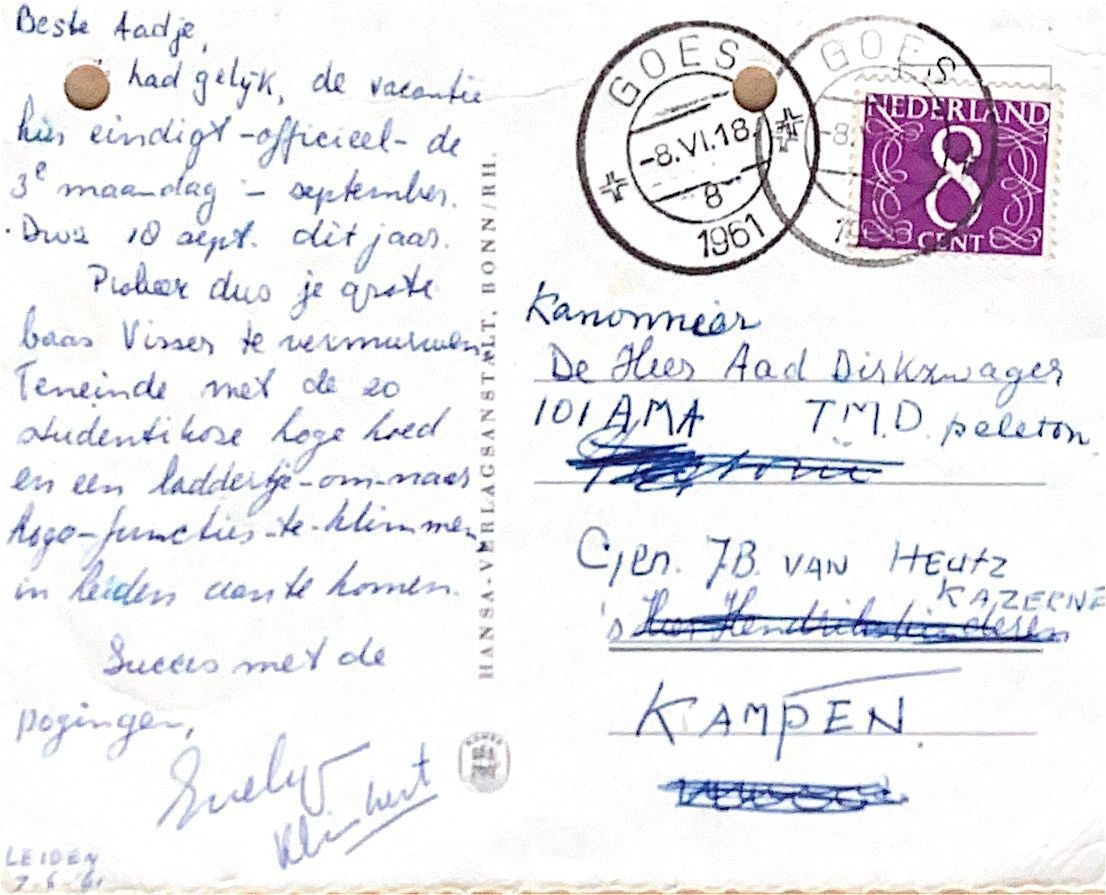 Beste Aadje,
had gelijk, de vacantie
hier eindigt -officieel- de
3e maandag - september.
Dus 18 sept. dit jaar.
Probeer dus je grote
baas Visser te vermurwen
Teneinde met de zo
studentikose hoge hoed
en een laddertje-om-naar
hoge-functies-te-klimmen
in Leiden aan te komen.
Succes met de
pogingen,
LEIDEN
7-6-'61
HANSA-VERLAGSANSTALT, BONN/RH.
GOES
-8.VI.18.
8
1961
GOES
-8.
NEDERLAND
8
CENT
Kanonnier
De Heer Aad Dirkzwager
101 AMA T.M.D. peleton
Gen. J.B. VAN HEUTZ
KAZERNE
's
KAMPEN.